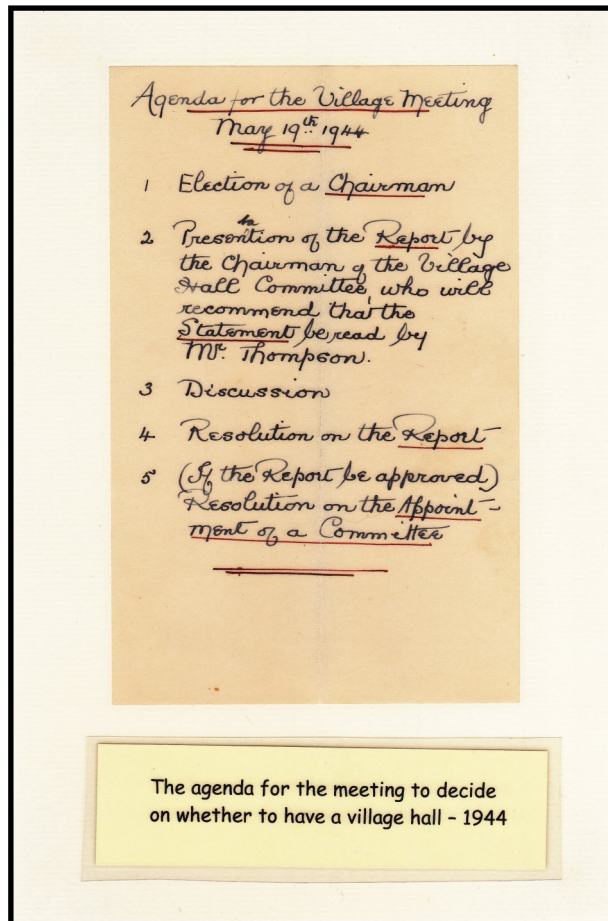 Agenda for the Village Meeting
May 19th 1944
1 Election of a Chairman
2 Presentation of the Report by
the Chairman of the Village
Hall Committee, who will
recommend that the
Statement be read by
Mr. Thompson.
3 Discussion
4 Resolution on the Report
5 (If the Report be approved)
Resolution on the Appoint-
ment of a Committee
The agenda for the meeting to decide
on whether to have a village hall – 1944